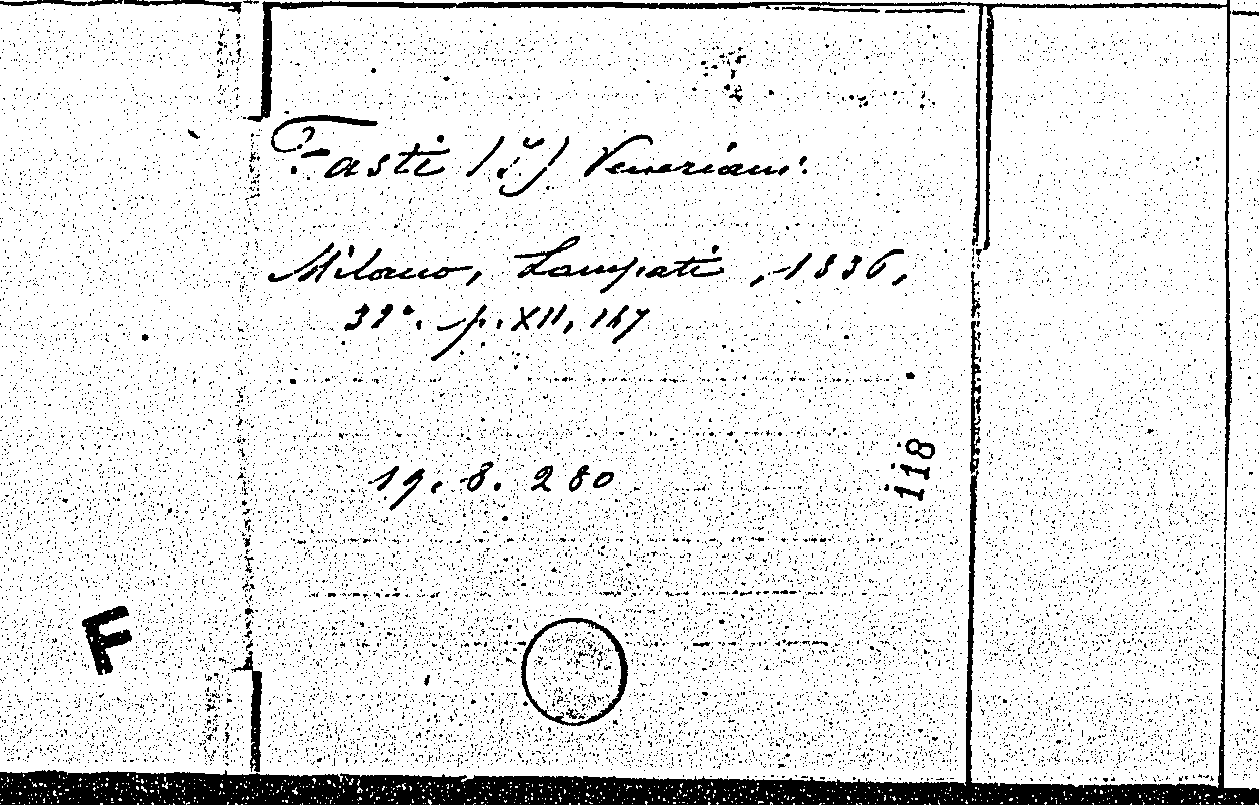 Fasti (I) Veneriani.
Milano, Lampati, 1836,
32°. p. XII, 147
19. 8. 280
118
F